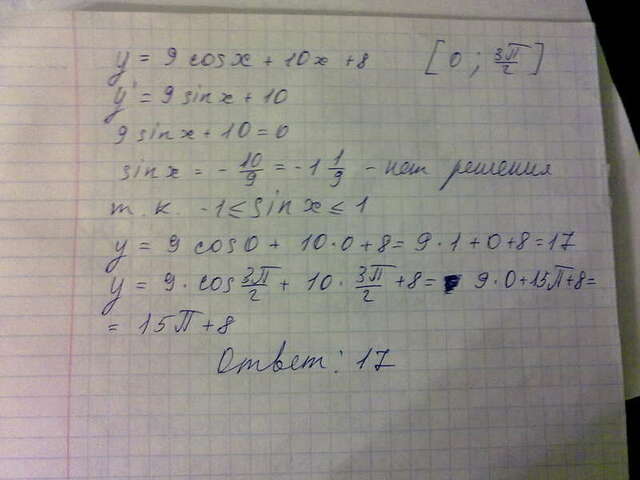 y = 9 cosx + 10x + 8 [0; 3π/2]
y' = 9 sinx + 10
9 sinx + 10 = 0
sinx = - 10/9 = -1 1/9 - нет решения
т.к. -1 ≤ sin x ≤ 1
y = 9 cos0 + 10·0 + 8 = 9·1 + 0 + 8 = 17
y = 9·cos 3π/2 + 10· 3π/2 + 8 = 9·0 + 15π + 8 =
= 15π + 8
Ответ: 17